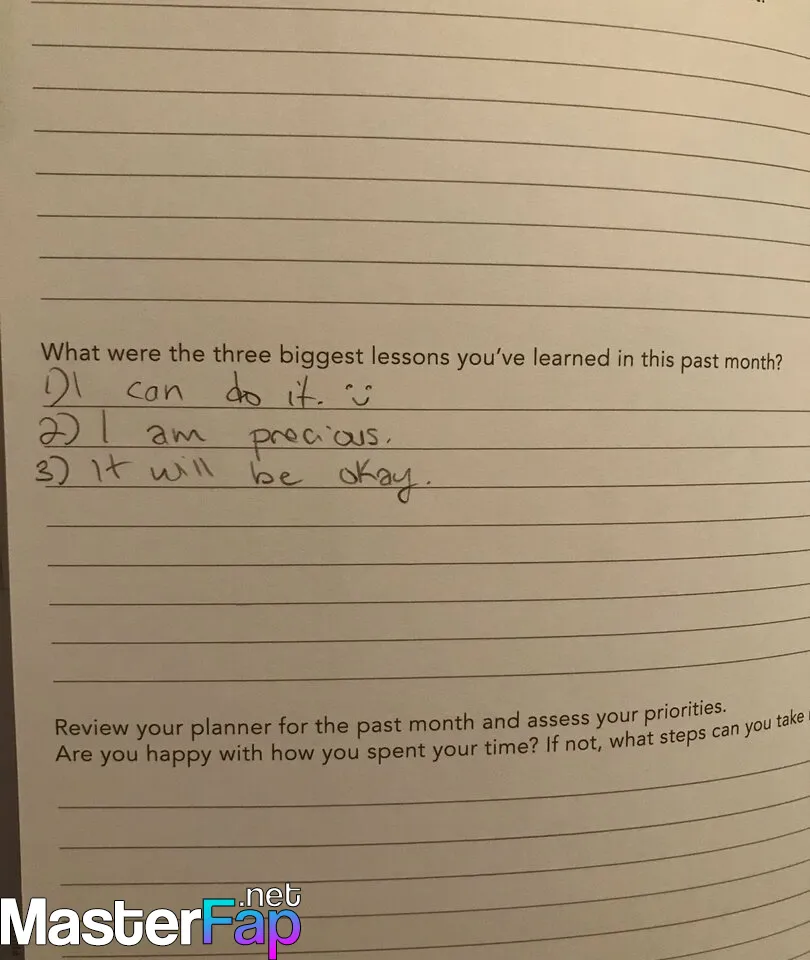 What were the three biggest lessons you've learned in this past month?
1) I can do it. :)
2) I am precious.
3) It will be okay.
Review your planner for the past month and assess your priorities.
Are you happy with how you spent your time? If not, what steps can you take
MasterFap.net